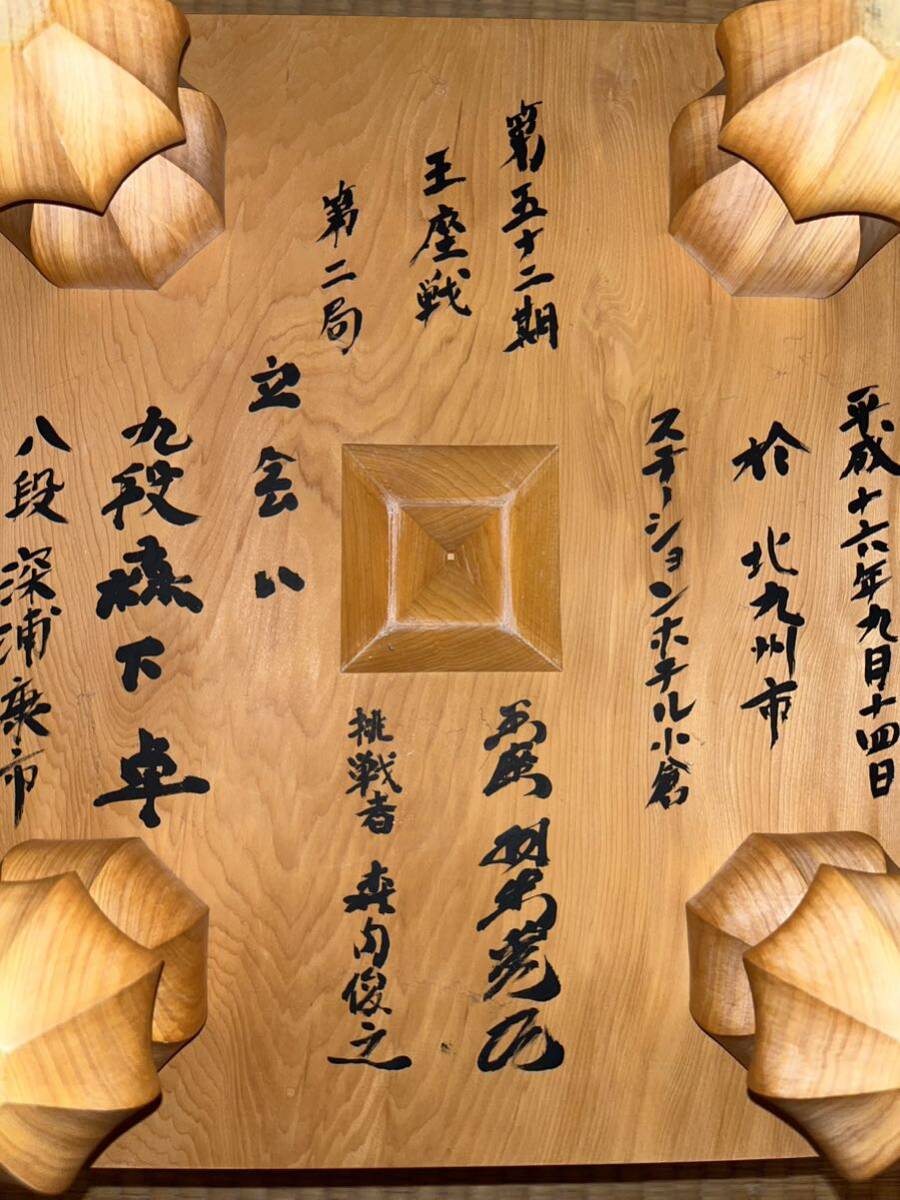 平成十六年九月十四日
於 北九州市
ステーションホテル小倉
第五十二期
王座戦
第二局
王座 羽生善治
挑戦者 森内俊之
立会人
九段 森下 卓
八段 深浦康市